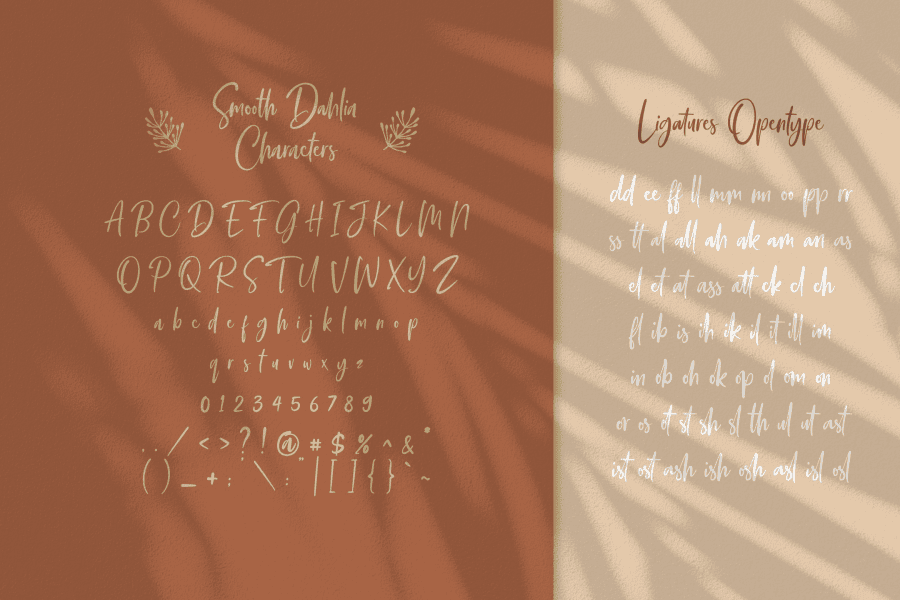 Smooth Dahlia
Characters
A B C D E F G H I J K L M N
O P Q R S T U V W X Y Z
a b c d e f g h i j k l m n o p
q r s t u v w x y z
0 1 2 3 4 5 6 7 8 9
. , / < > ? ! @ # $ % ^ & *
( ) _ + ; \ : " | [ ] { } ` ~
Ligatures Opentype
dd ee ff ll mm nn oo pp rr
ss tt al all ah ak am an as
el et at ass att ck cl ch
fl ib is ih ik il it ill im
in ob oh ok op ol om on
or os ot st sh sl th ul ut ast
ist ost ash ish osh asl isl osl